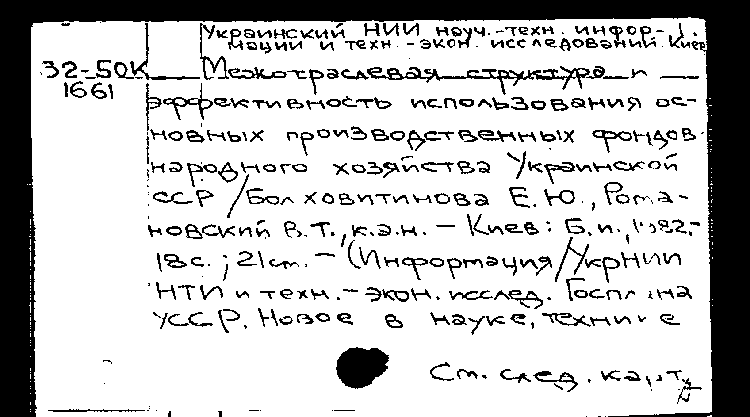 Украинский НИИ науч.-техн. инфор-
мации и техн.-экон. исследований. Киев
32-50К Межотраслевая структура и
1661
эффективность использования ос-
новных производственных фондов
народного хозяйства Украинской
ССР / Болховитинова Е.Ю., Рома-
новский В.Т., к.э.н. – Киев: Б.и., 1982.-
18с.; 21см. – (Информация / УкрНИИ
НТИ и техн.-экон. исслед. Госплана
УССР. Новое в науке, технике
См. след. карт.